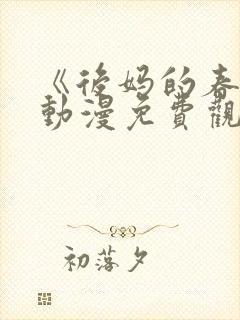 《後妈的春
動漫免費觀
初落夕